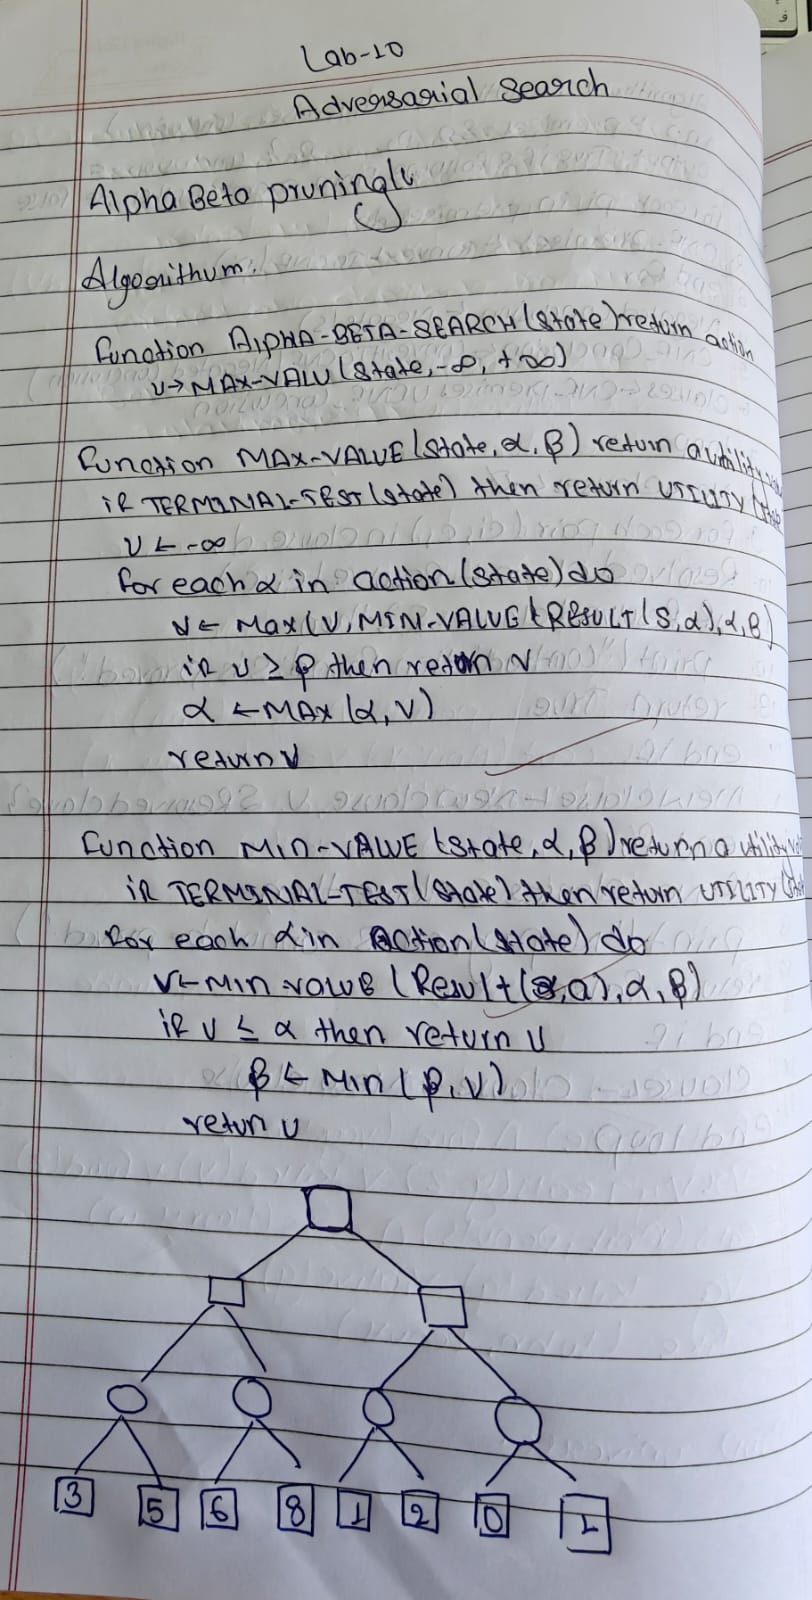 Lab-10
Adversarial Search
Alpha Beta pruning
Algorithum:
function ALPHA-BETA-SEARCH(state) return action
v→ MAX-VALU(state, -∞, +∞)
function MAX-VALUE(state, α, β) return a utility
if TERMINAL-TEST(state) then return UTILITY
v ← -∞
for each α in action(state) do
v ← Max(v, MIN-VALUE(RESULT(s, α), α, β)
if v ≥ β then return v
α ← MAX (α, v)
return v
function MIN-VALUE (state, α, β) return a utility
if TERMINAL-TEST(state) then return UTILITY
for each α in action(state) do
v ← Min value (Result(s, a), α, β)
if v ≤ α then return v
β ← Min (β, v)
retun v
3 5 6 8 1 2 0 1